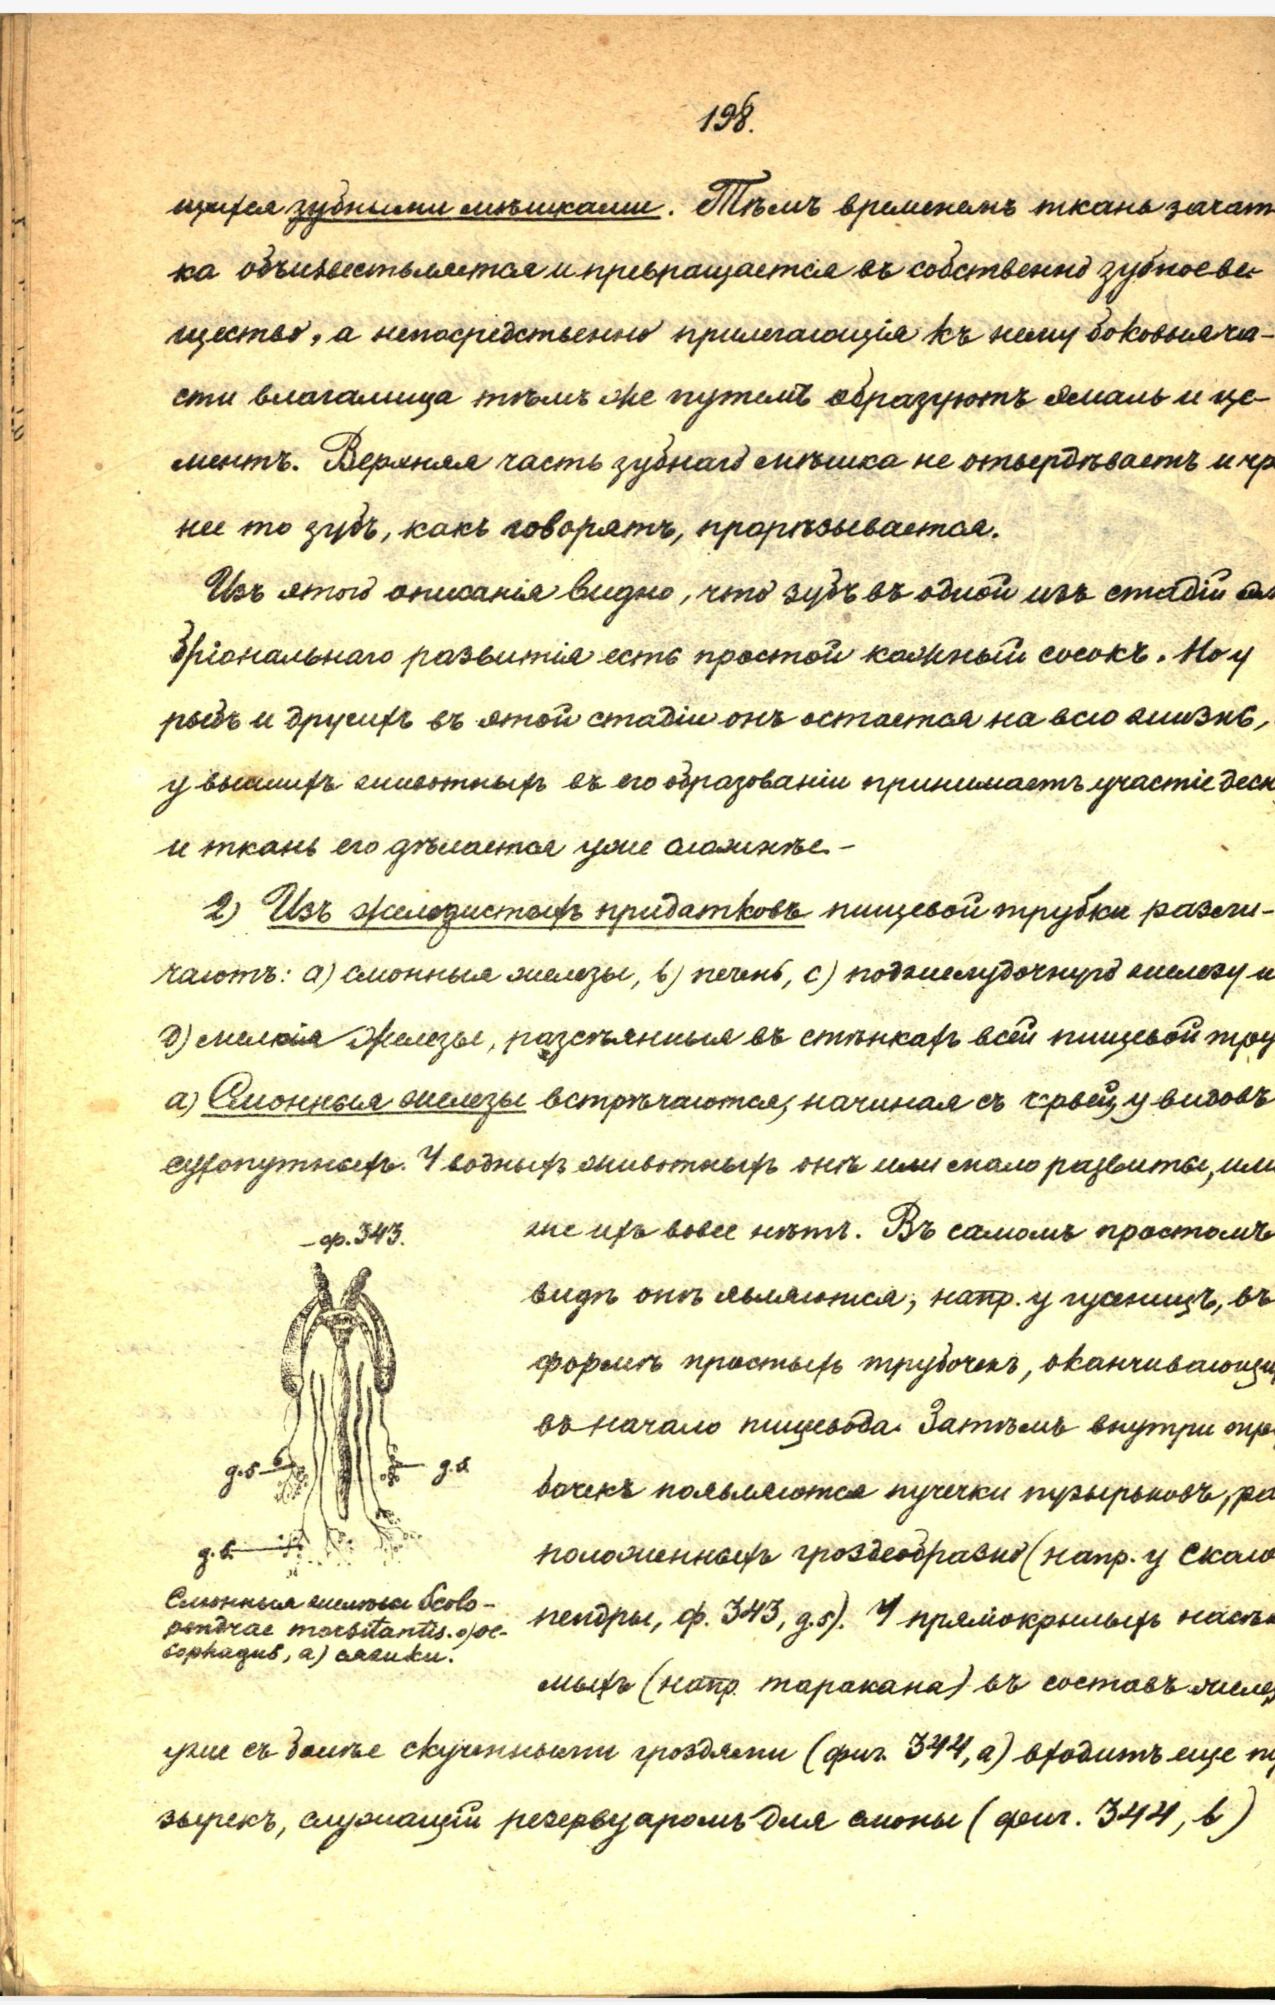 198.
щихся зубными мѣшками. Тѣмъ временемъ ткань зачат
ка объизвествляется и превращается въ собственно зубное ве-
щество, а непосредственно прилегающія къ нему боковыя ча-
сти влагалища тѣмъ же путемъ образуютъ эмаль и це-
ментъ. Верхняя часть зубнаго мѣшка не отвердѣваетъ и чр
нее то зубъ, какъ говорятъ, прорѣзывается.
Изъ этого описанія видно, что зубъ въ одной изъ стадій эм
бріональнаго развитія есть простой кожный сосокъ. Но у
рыбъ и другихъ въ этой стадіи онъ остается на всю жизнь,
у высшихъ животныхъ въ его образованіи принимаетъ участіе десн
и ткань его дѣлается уже сложнѣе.-
2) Изъ железистыхъ придатковъ пищевой трубки разли-
чаютъ: а) слюнныя железы, b) печень, с) поджелудочную железу и
d) мелкія железы, разсѣянныя въ стѣнкахъ всей пищевой тру
а) Слюнныя железы встрѣчаются, начиная съ червей, у видовъ
сухопутныхъ. У водныхъ животныхъ онѣ или мало развиты, или
же ихъ вовсе нѣтъ. Въ самомъ простомъ
видѣ онѣ являются, напр. у гусеницъ, въ
формѣ простыхъ трубочекъ, оканчивающи
въ начало пищевода. Затѣмъ внутри тру
бочекъ появляются пучечки пузырьковъ, ра
положенныхъ гроздеобразно (напр. у Сколо
пендры, ф. 343, g.s). У прямокрылыхъ насѣко
мыхъ (напр. таракана) въ составъ желез
уже съ болѣе скученными гроздями (фиг. 344, а) входитъ еще пу
зырекъ, служащій резервуаромъ для слюны (фиг. 344, b)
- ф. 343.
g.s
g.s.
g.s.
Слюнныя железы Scolo-
pendrae morsitantis. o) oe-
sophagus, a) сяжки.